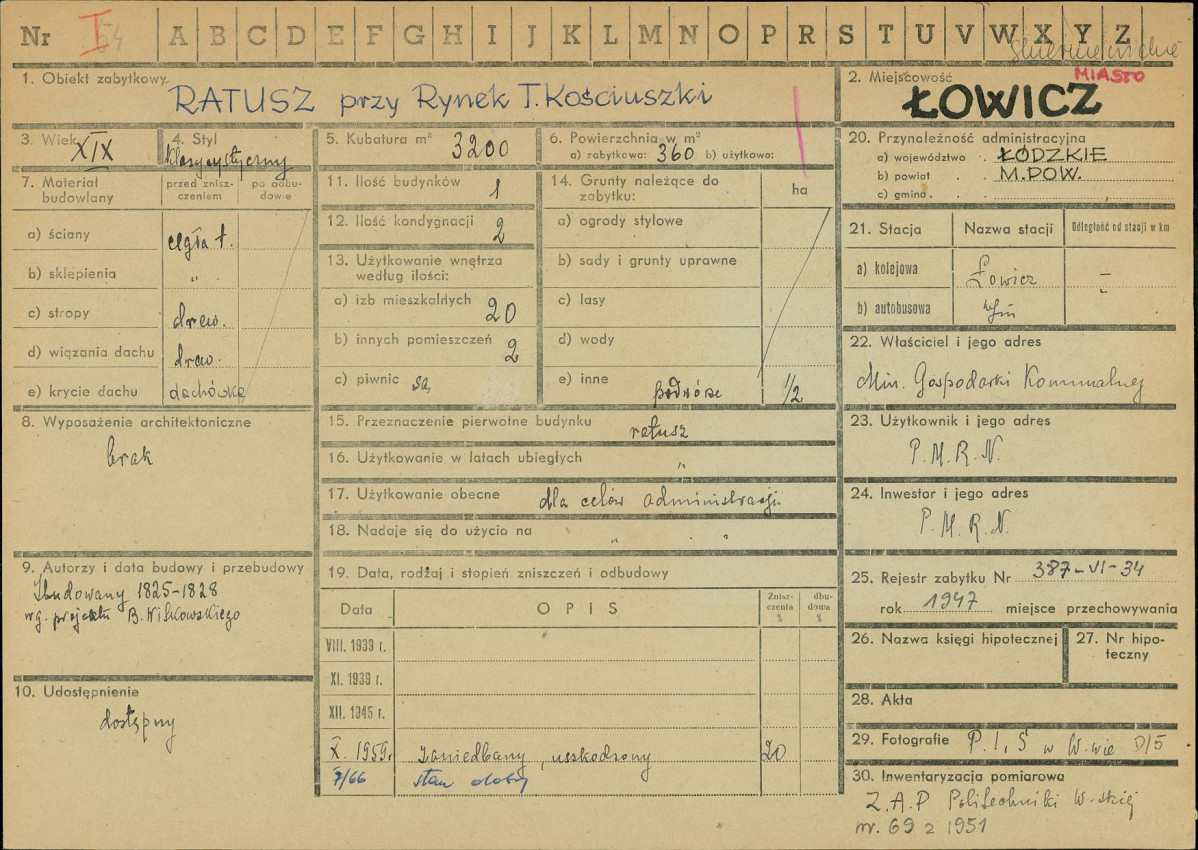 Nr I 54 A B C D E F G H I J K L M N O P R S T U V W X Y Z
skierniewickie
1. Obiekt zabytkowy
RATUSZ przy Rynek T. Kościuszki
2. Miejscowość MIASTO
ŁOWICZ
3. Wiek XIX
4. Styl klasycystyczny
5. Kubatura m³ 3200
6. Powierzchnia w m²
a) zabytkowa: 360 b) użytkowa:
7. Materiał budowlany
przed zniszczeniem
po odbudowie
a) ściany cegła t.
b) sklepienia „
c) stropy drew.
d) wiązania dachu drew.
e) krycie dachu dachówka
8. Wyposażenie architektoniczne
brak
9. Autorzy i data budowy i przebudowy
Zbudowany 1825-1828
wg. projektu B. Witkowskiego
10. Udostępnienie
dostępny
11. Ilość budynków 1
12. Ilość kondygnacji 2
13. Użytkowanie wnętrza
według ilości:
a) izb mieszkalnych 20
b) innych pomieszczeń 2
c) piwnic są
14. Grunty należące do
zabytku:
ha
a) ogrody stylowe
b) sady i grunty uprawne
c) lasy
d) wody
e) inne podwórze 1/2
15. Przeznaczenie pierwotne budynku ratusz
16. Użytkowanie w latach ubiegłych „
17. Użytkowanie obecne dla celów administracji
18. Nadaje się do użycia na „ „
19. Data, rodzaj i stopień zniszczeń i odbudowy
Data
OPIS
Zniszczenia %
dbudowa %
VIII. 1939 r.
XI. 1939 r.
XII. 1945 r.
X. 1959r. zaniedbany, uszkodzony 20
7/66 stan dobry
20. Przynależność administracyjna
a) województwo ŁÓDZKIE
b) powiat M.POW.
c) gmina
21. Stacja
Nazwa stacji
Odległość od stacji w km
a) kolejowa Łowicz
b) autobusowa
22. Właściciel i jego adres
Min. Gospodarki Komunalnej
23. Użytkownik i jego adres
P. M. R. N.
24. Inwestor i jego adres
P. M. R. N.
25. Rejestr zabytku Nr 387-VI-34
rok 1947 miejsce przechowywania
26. Nazwa księgi hipotecznej
27. Nr hipoteczny
28. Akta
29. Fotografie P. I. S w W-wie D/5
30. Inwentaryzacja pomiarowa
Z.A.P Politechniki W-skiej
nr. 69 z 1951